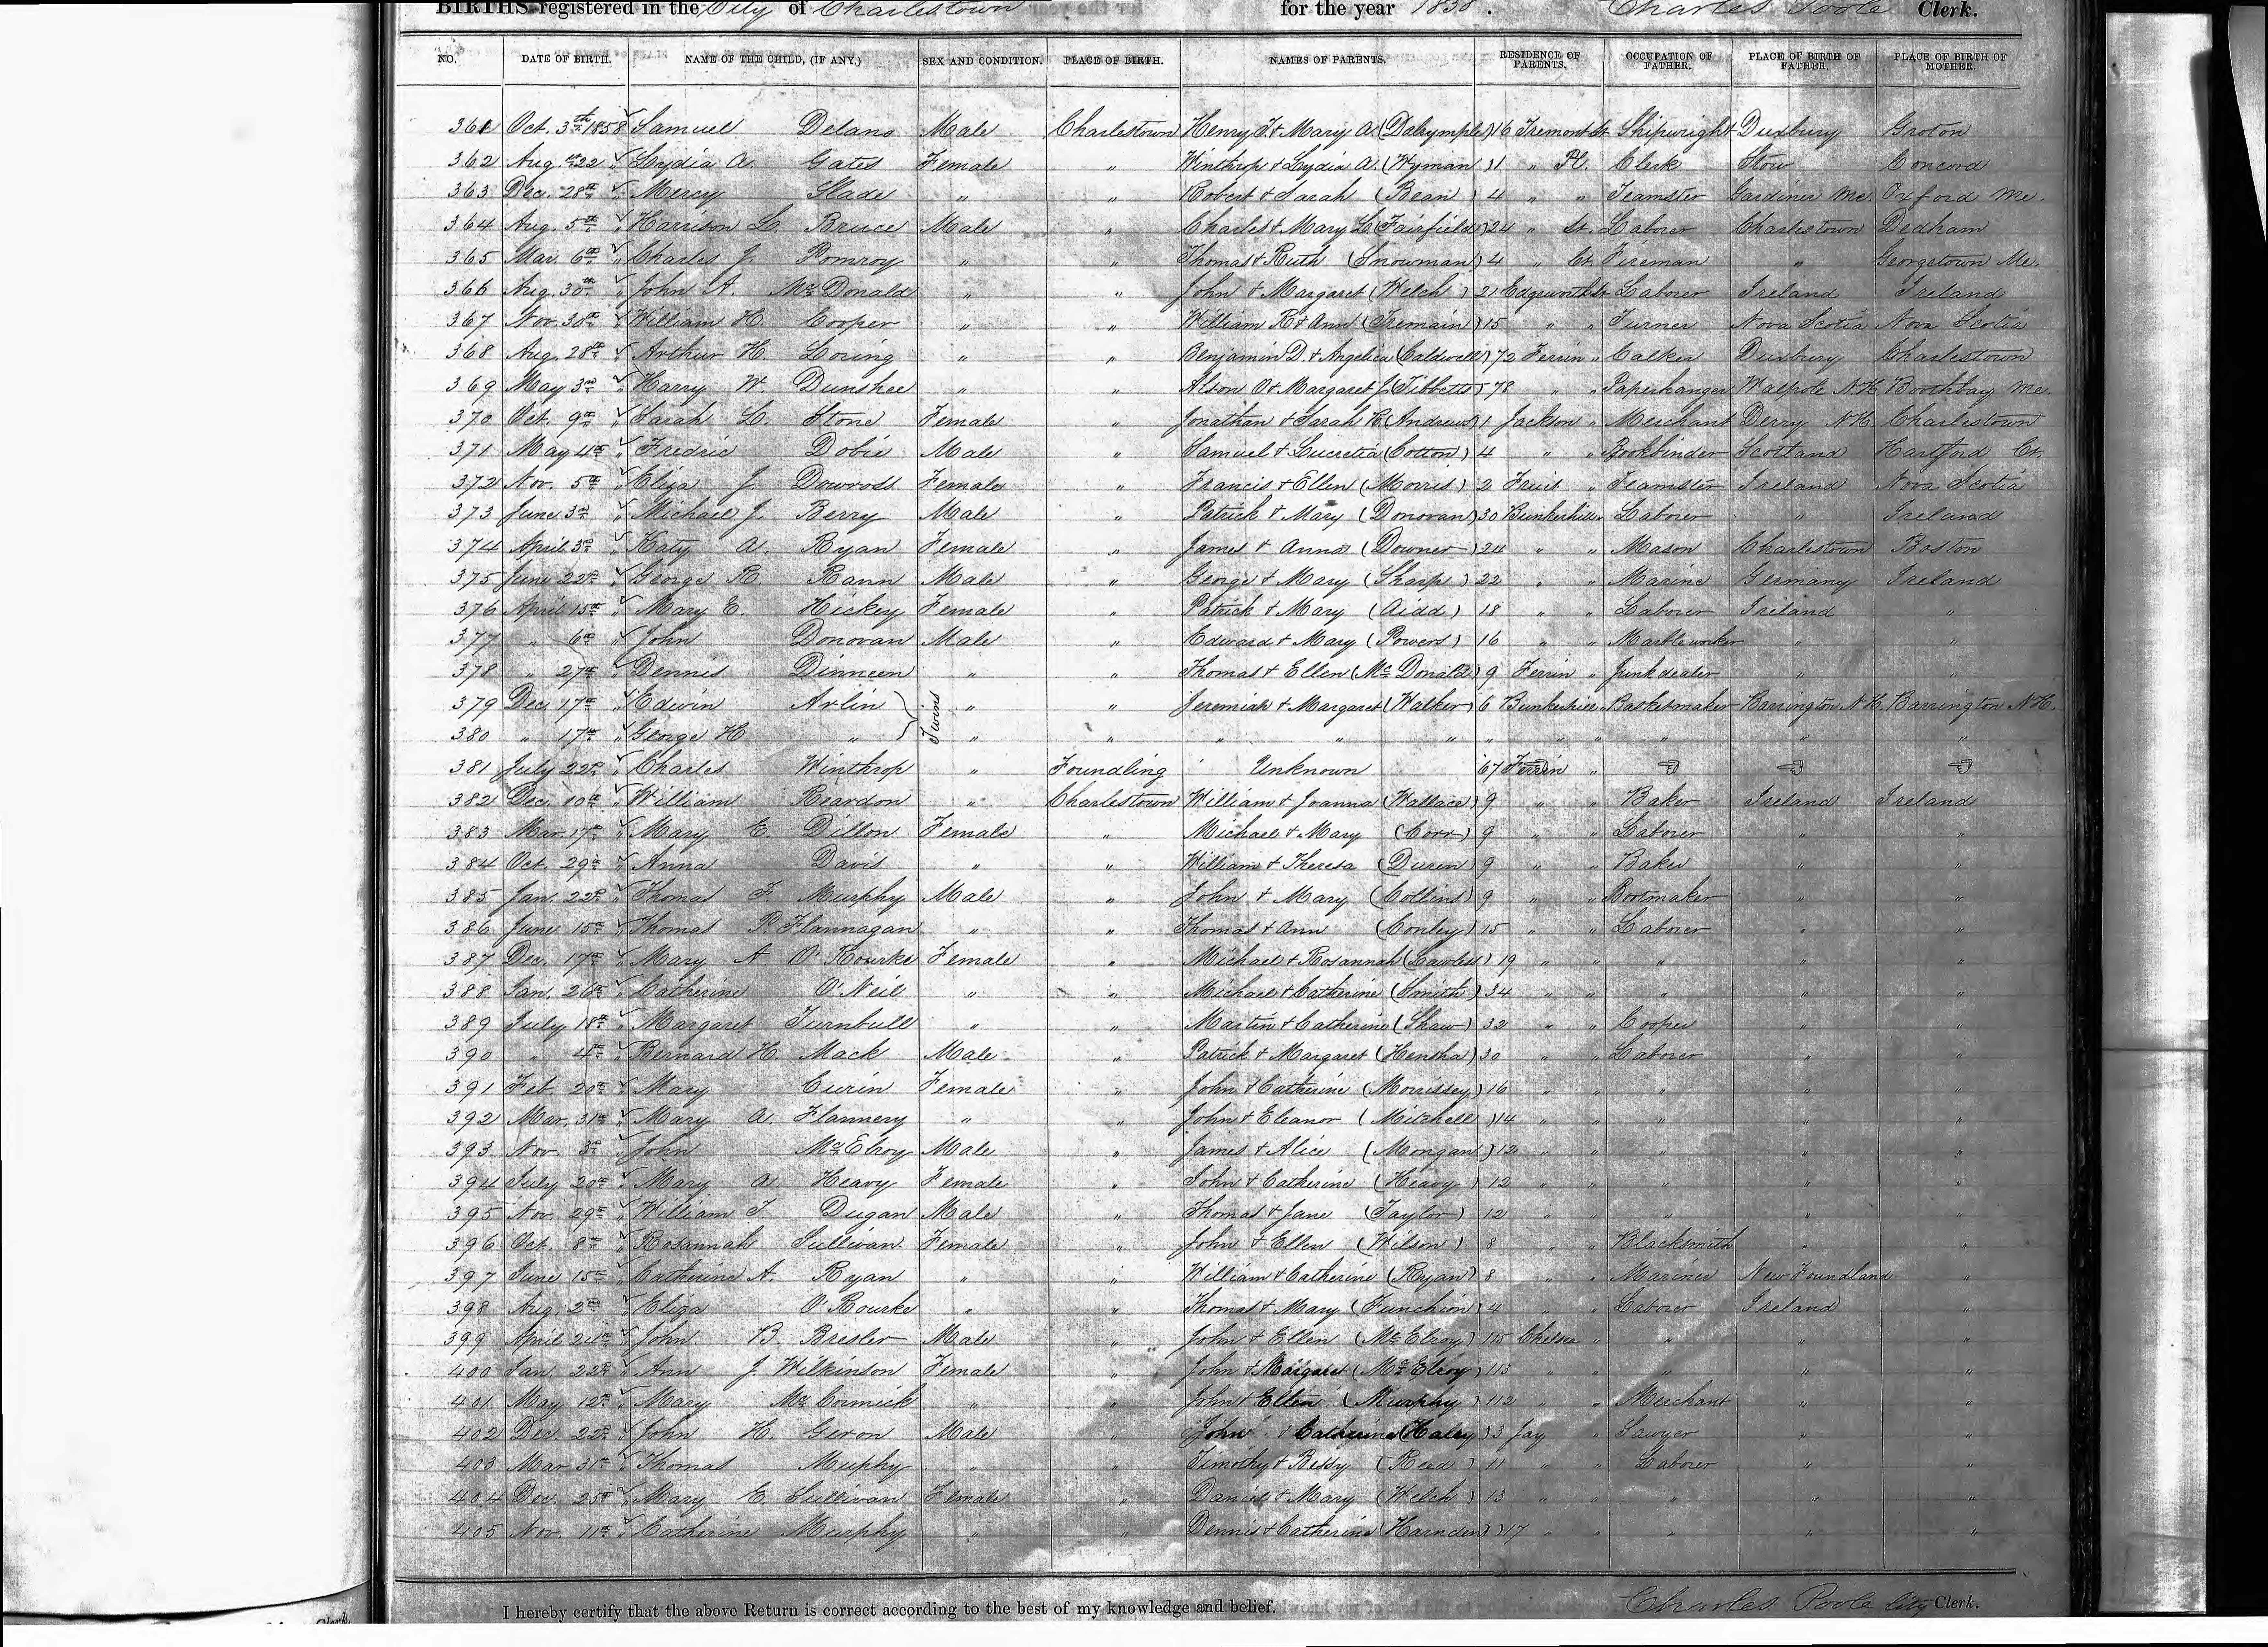 BIRTHS registered in the City of Charlestown for the year 1858. Charles Poole Clerk.
NO. DATE OF BIRTH. NAME OF THE CHILD, (IF ANY.) SEX AND CONDITION. PLACE OF BIRTH. NAMES OF PARENTS. RESIDENCE OF PARENTS. OCCUPATION OF FATHER. PLACE OF BIRTH OF FATHER. PLACE OF BIRTH OF MOTHER.
361 Oct. 3th 1858 Samuel Delano Male Charlestown Henry T. & Mary A. (Dalrymple) 16 Tremont St Shipwright Duxbury Groton
362 Aug. 22 " Lydia A. Gates Female " Winthrop & Lydia A. (Wyman) 1 " Pl. Clerk Stow Concord
363 Dec. 28th " Mercy Slade " " Robert & Sarah (Bean) 4 " " Teamster Gardiner Me. Oxford Me.
364 Aug. 5th " Harrison L. Bruce Male " Charles & Mary L. (Fairfield) 24 " St. Laborer Charlestown Dedham
365 Mar. 6th " Charles J. Pomroy " " Thomas & Ruth (Snowman) 4 " Ct. Fireman " Georgetown Me.
366 Aug. 30th " John A. McDonald " " John & Margaret (Welch) 21 Edgeworth St Laborer Ireland Ireland
367 Nov. 30th " William H. Cooper " " William R. & Ann (Tremain) 15 " " Turner Nova Scotia Nova Scotia
368 Aug. 28th " Arthur H. Loring " " Benjamin D. & Angelica (Caldwell) 72 Ferrin " Calker Duxbury Charlestown
369 May 3rd " Harry W. Dunshee " " Alson O. & Margaret J. (Tibbetts) 78 " " Paperhanger Walpole N.H. Boothbay Me.
370 Oct. 9th " Sarah L. Stone Female " Jonathan & Sarah R. (Andrews) 1 Jackson " Merchant Derry N.H. Charlestown
371 May 4th " Fredric Dobie Male " Samuel & Lucretia (Cotton) 4 " " Bookbinder Scotland Hartford Ct.
372 Nov. 5th " Eliza J. Dowross Female " Francis & Ellen (Morris) 2 Fruit " Teamster Ireland Nova Scotia
373 June 3rd " Michael J. Berry Male " Patrick & Mary (Donovan) 30 Bunkerhill " Laborer " Ireland
374 April 3rd " Katy A. Ryan Female " James & Anna (Downer) 24 " " Mason Charlestown Boston
375 June 22nd " George R. Rann Male " George & Mary (Sharp) 22 " " Marine Germany Ireland
376 April 15th " Mary E. Hickey Female " Patrick & Mary (Aidd) 18 " " Laborer Ireland "
377 " 6th " John Donovan Male " Edward & Mary (Powers) 16 " " Marble worker " "
378 " 27th " Dennis Dinneen " " Thomas & Ellen (McDonald) 9 Ferrin " Junk dealer " "
379 Dec. 17th " Edwin Arlin Twins " " Jeremiah & Margaret (Walker) 6 Bunkerhill " Basketmaker Barrington N.H. Barrington N.H.
380 " 17th " George H " " " " " " " " " " " "
381 July 22nd " Charles Winthrop " Foundling Unknown 67 Ferrin "
382 Dec. 10th " William Reardon " Charlestown William & Joanna (Wallace) 9 " " Baker Ireland Ireland
383 Mar. 17th " Mary E. Dillon Female " Michael & Mary (Corr) 9 " " Laborer " "
384 Oct. 29th " Anna Davis " " William & Theresa (Duren) 9 " " Baker " "
385 Jan. 22nd " Thomas F. Murphy Male " John & Mary (Collins) 9 " " Bootmaker " "
386 June 15th " Thomas P. Flannagan " " Thomas & Ann (Conley) 15 " " Laborer " "
387 Dec. 17th " Mary A O'Rourke Female " Michael & Rosannah (Lawless) 19 " " " " "
388 Jan. 26th " Catherine O'Neil " " Michael & Catherine (Smith) 34 " " " " "
389 July 18th " Margaret Turnbull " " Martin & Catherine (Shaw) 32 " " Cooper " "
390 " 4th " Bernard H. Mack Male " Patrick & Margaret (Henshal) 30 " " Laborer " "
391 Feb. 20th " Mary Curin Female " John & Catherine (Morrissey) 16 " " " " "
392 Mar. 31st " Mary A. Flannery " " John & Eleanor (Mitchell) 14 " " " " "
393 Nov. 3rd " John McElroy Male " James & Alice (Mongan) 12 " " " " "
394 July 20th " Mary A. Heavy Female " John & Catherine (Heavy) 12 " " " " "
395 Nov. 29th " William T. Dugan Male " Thomas & Jane (Taylor) 12 " " " " "
396 Oct. 8th " Rosannah Sullivan Female " John & Ellen (Wilson) 8 " " Blacksmith " "
397 June 15th " Catherine A. Ryan " " William & Catherine (Ryan) 8 " " Mariner New Foundland "
398 Aug. 2nd " Eliza O'Rourke " " Thomas & Mary (Funchion) 4 " " Laborer Ireland "
399 April 24th " John B. Bresler Male " John & Ellen (McElroy) 115 Chelsea " " " "
400 Jan. 22nd " Ann J. Wilkinson Female " John & Margaret (McElroy) 113 " " " " "
401 May 12th " Mary McCormick " " John & Ellen (Murphy) 112 " " Merchant " "
402 Dec. 22nd " John H. Geron Male " John & Catherine (Haley) 3 Jay " Sawyer " "
403 Mar 31st " Thomas Muphy " " Timothy & Bessy (Reed) 11 " " Laborer " "
404 Dec. 25th " Mary E. Sullivan Female " Daniel & Mary (Welch) 13 " " " " "
405 Nov. 11th " Catherine Murphy " " Dennis & Catherine (Harnden) 17 " " " " "
I hereby certify that the above Return is correct according to the best of my knowledge and belief. Charles Poole City Clerk.
Clerk.